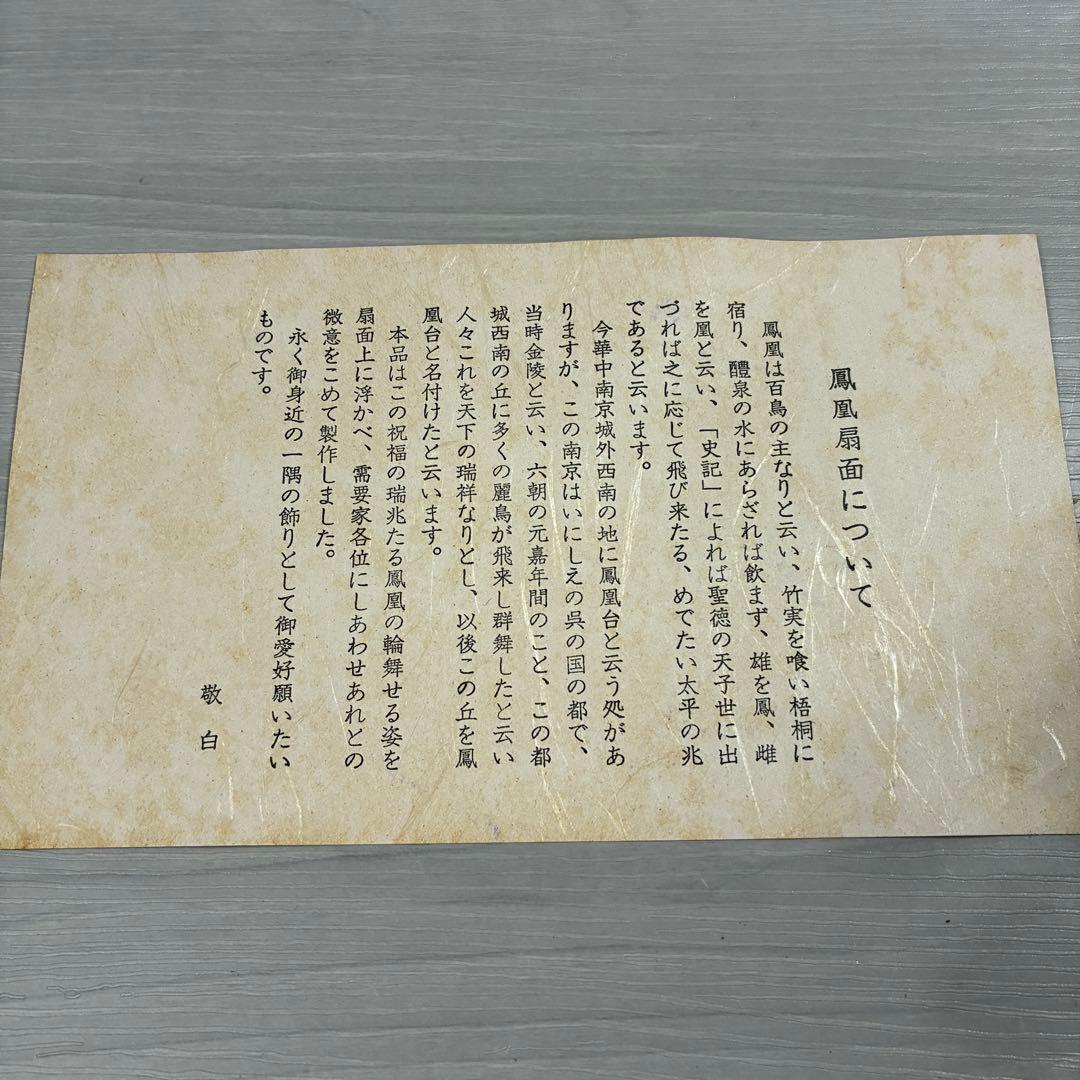 鳳凰扇面について
鳳凰は百鳥の主なりと云い、竹実を喰い梧桐に
宿り、醴泉の水にあらざれば飲まず、雄を鳳、雌
を凰と云い、「史記」によれば聖徳の天子世に出
づれば之に応じて飛び来たる、めでたい太平の兆
であると云います。
今華中南京城外西南の地に鳳凰台と云う処があ
りますが、この南京はいにしえの呉の国の都で、
当時金陵と云い、六朝の元嘉年間のこと、この都
城西南の丘に多くの麗鳥が飛来し群舞したと云い
人々これを天下の瑞祥なりとし、以後この丘を鳳
凰台と名付けたと云います。
本品はこの祝福の瑞兆たる鳳凰の輪舞せる姿を
扇面上に浮かべ、需要家各位にしあわせあれとの
微意をこめて製作しました。
永く御身近の一隅の飾りとして御愛好願いたい
ものです。
敬白